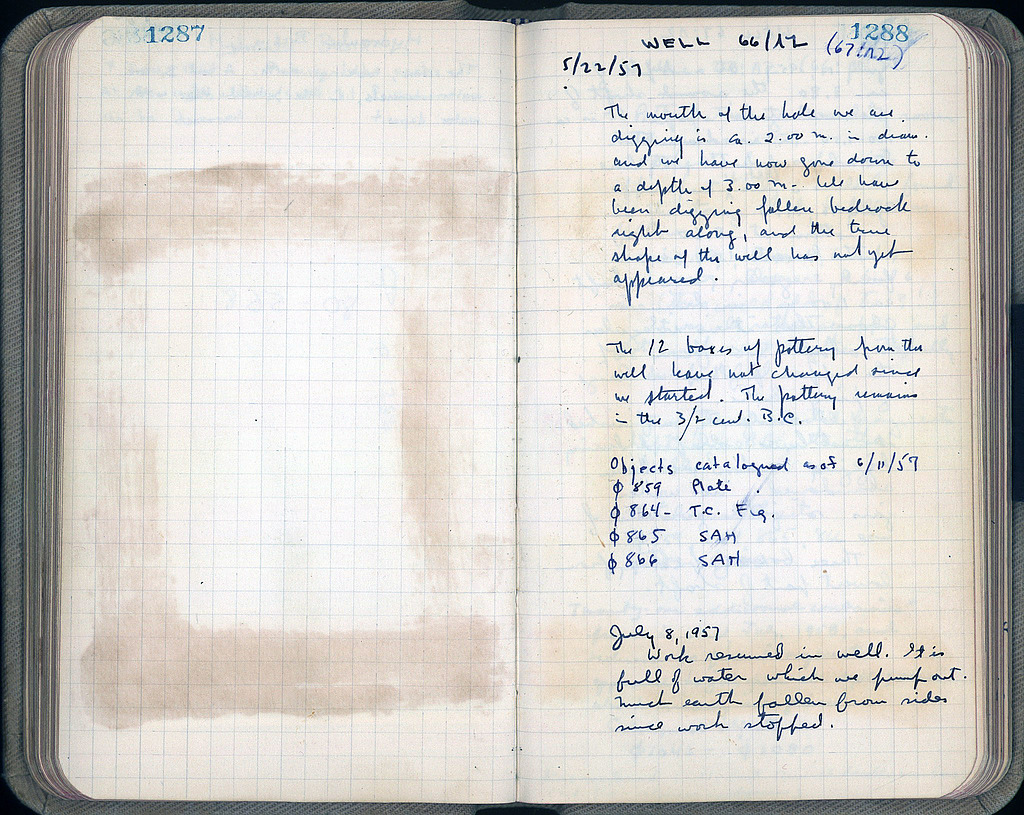 1287
1288
WELL 66/12 (67:12)
5/22/57
The mouth of the hole we are
digging is ca. 2.00 m. in diam.
and we have now gone down to
a depth of 3.00 m. We have
been digging fallen bedrock
right along, and the true
shape of the well has not yet
appeared.
The 12 boxes of pottery from the
well have not changed since
we started. The pottery remains
in the 3/2 cent. B.C.
Objects catalogued as of 6/11/57
ϕ 859 Plate
ϕ 864- T.C. Fig.
ϕ 865 SAH
ϕ 866 SAH
July 8, 1957
Work resumed in well. It is
full of water which we pump out.
Much earth fallen from sides
since work stopped.